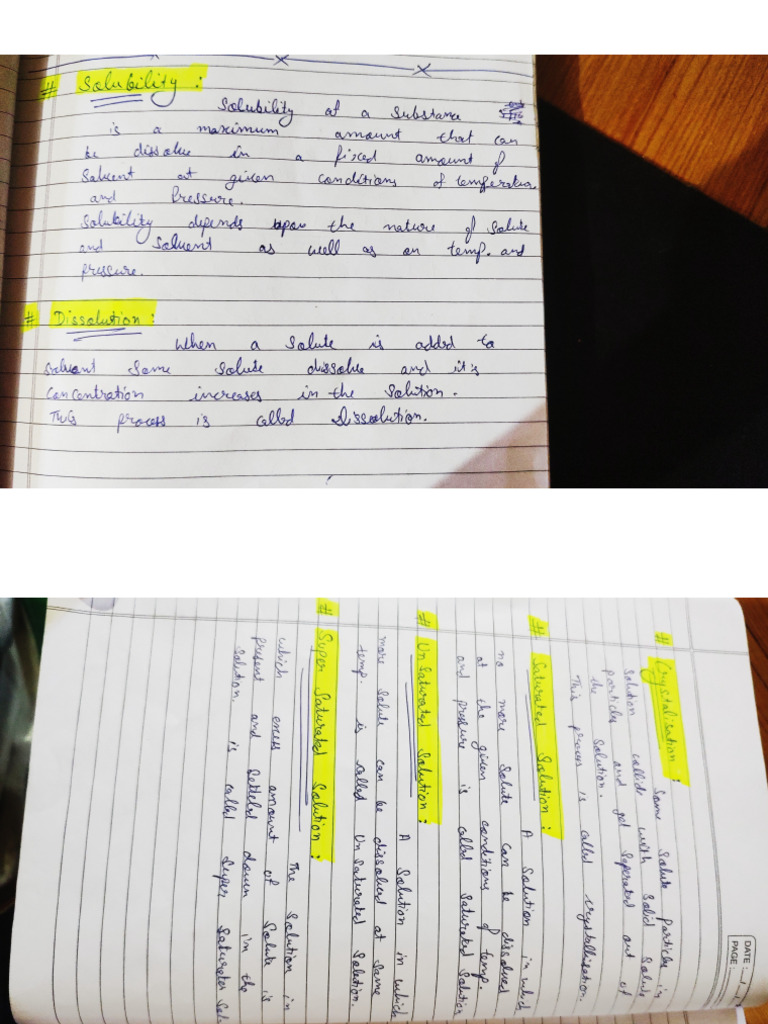 # Solubility :
Solubility of a substance
is a maximum amount that can
be dissolve in a fixed amount of
Solvent at given conditions of temperature
and Pressure.
Solubility depends upon the nature of Solute
and Solvent as well as on temp. and
pressure.
# Dissolution :
When a Solute is added to
Solvent Some Solute dissolve and it's
Concentration increases in the Solution.
This process is called Dissolution.
DATE :
PAGE :
# Crystalisation :
Some Solute particles in
Solution collide with Solid Solute
particles and get Seperated out of
the Solution.
This process is called crystallisation.
# Saturated Solution :
A Solution in which
no more Solute can be dissolved
at the given conditions of temp.
and pressure is called Saturated Solution
# UnSaturated Solution :
A Solution in which
more Solute can be dissolved at Same
temp. is called UnSaturated Solution.
# Super Saturated Solution :
The Solution in
which excess amount of Solute is
present and Settled down in the
Solution, is called Super Saturated